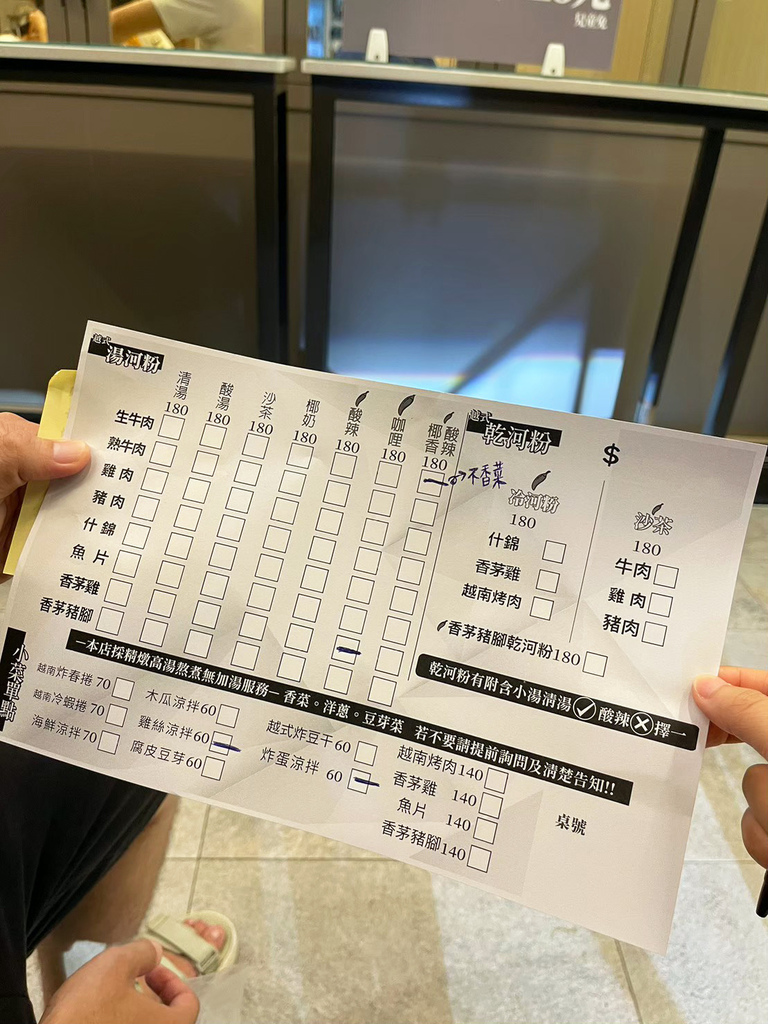 兒童免
越式
湯河粉
清湯 180
酸湯 180
沙茶 180
椰奶 180
酸辣 180
咖哩 180
酸辣椰香 180
生牛肉
熟牛肉
雞肉
豬肉
什錦
魚片
香茅雞
香茅豬腳
不香菜
越式
乾河粉
$
冷河粉
180
什錦
香茅雞
越南烤肉
沙茶
180
牛肉
雞肉
豬肉
香茅豬腳乾河粉180
乾河粉有附含小湯清湯✓酸辣✕擇一
–本店採精燉高湯熬煮無加湯服務– 香菜。洋蔥。豆芽菜 若不要請提前詢問及清楚告知!!
小菜單點
越南炸春捲 70
越南冷蝦捲 70
海鮮涼拌 70
木瓜涼拌60
雞絲涼拌60
腐皮豆芽60
越式炸豆干60
炸蛋涼拌 60
越南烤肉140
香茅雞 140
魚片 140
香茅豬腳140
桌號